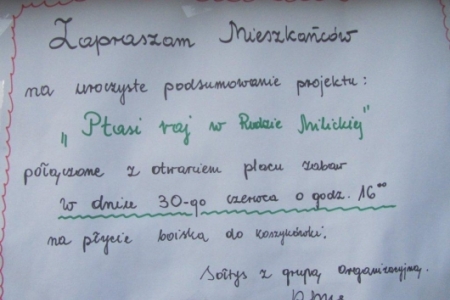 Zapraszam Mieszkańców
na uroczyste podsumowanie projektu:
„Ptasi raj w Rudzie Milickiej"
połączone z otwarciem placu zabaw
w dniu 30-go czerwca o godz. 16⁰⁰
na płycie boiska do koszykówki.
Sołtys z grupą organizacyjną.